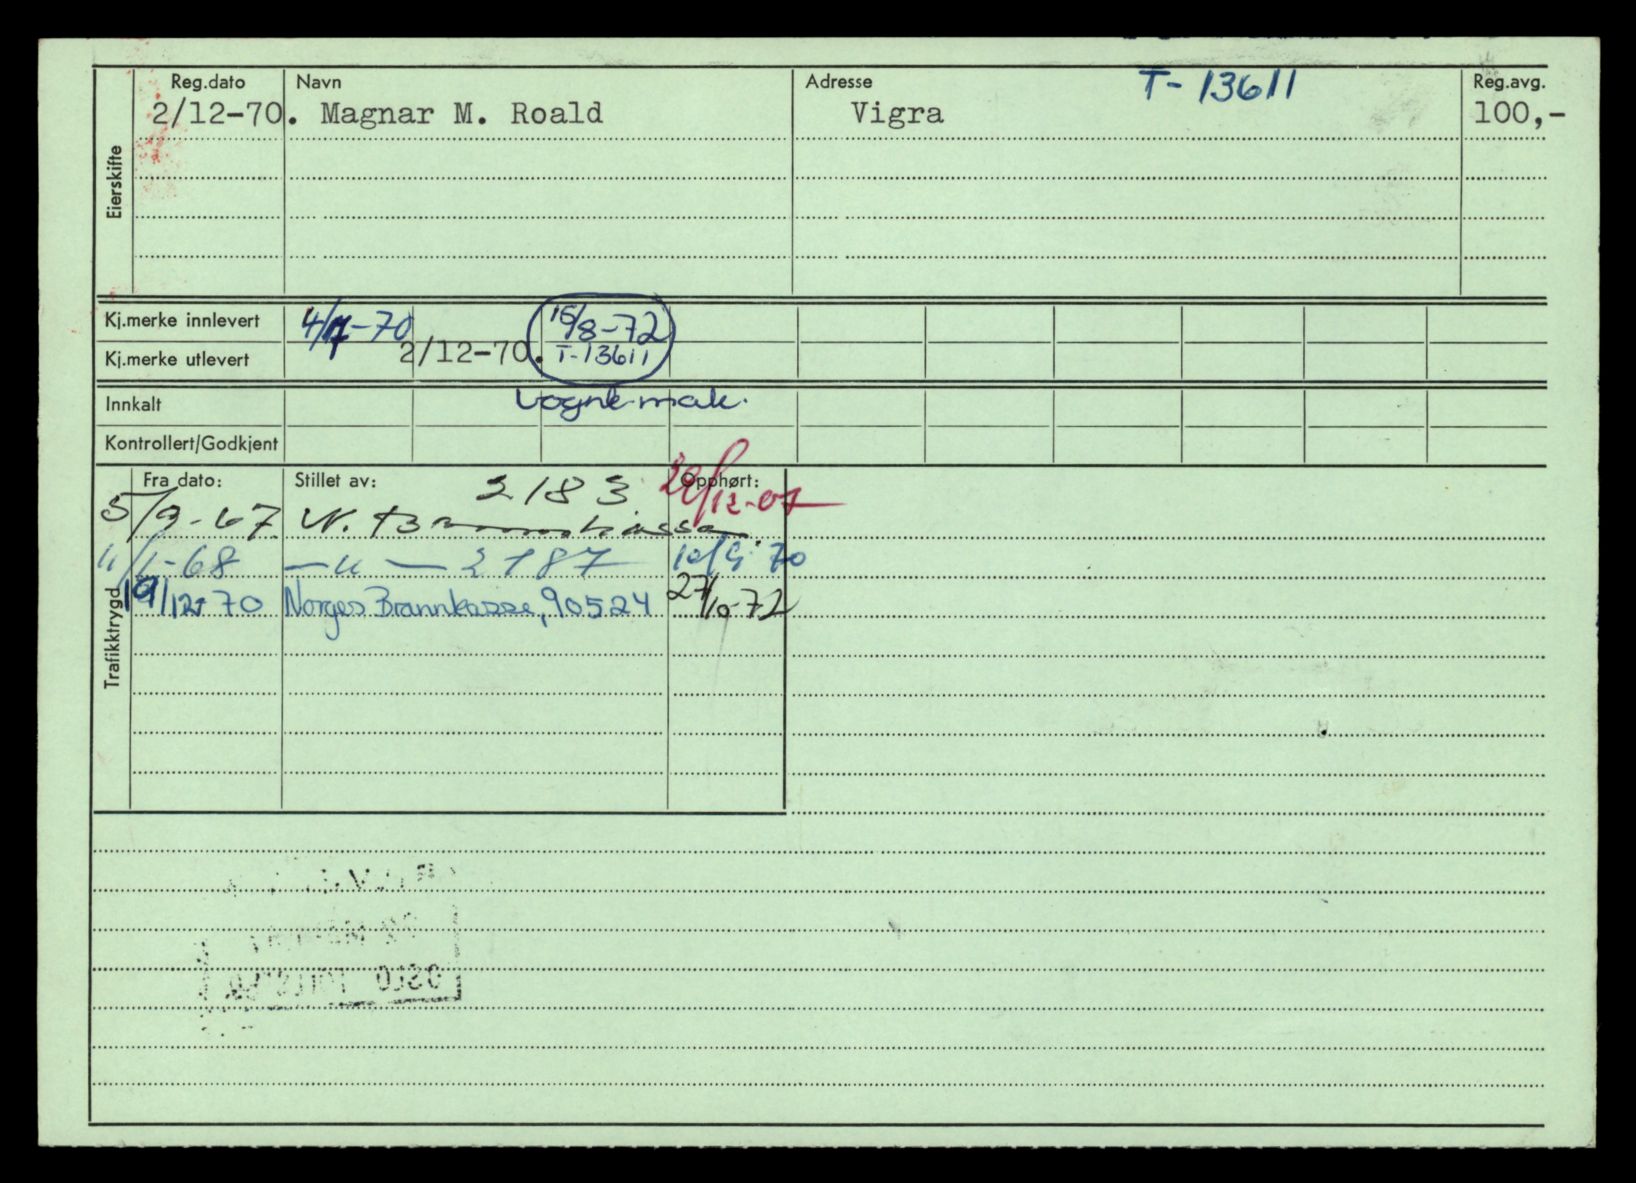 T-13611
Reg.dato Navn Adresse Reg.avg.
2/12-70. Magnar M. Roald Vigra 100,-
Eierskifte
Kj.merke innlevert 4/7-70 15/8-72
Kj.merke utlevert 2/12-70. T-13611
Innkalt
Kontrollert/Godkjent
Fra dato: Stillet av: 2183 Opphørt:
5/9-67 N. Brannkasse
11/1-68 — u — 2187 10/9-70
19/12-70 Norges Brannkasse, 90524 27/10-72
Trafikktrygd
OSLO